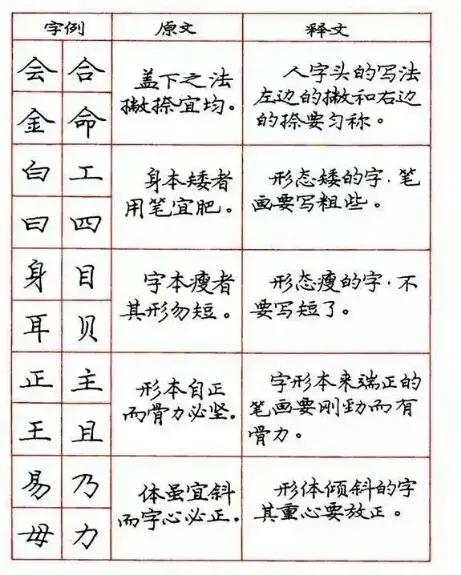 字例 原文 释文
会 合
金 命
盖下之法
撇捺宜均。
人字头的写法
左边的撇和右边
的捺要匀称。
白 工
曰 四
身本矮者
用笔宜肥。
形态矮的字,笔
画要写粗些。
身 目
耳 贝
字本瘦者
其形勿短。
形态瘦的字,不
要写短了。
正 主
王 且
形本自正
而骨力必坚。
字形本来端正的
笔画要刚劲而有
骨力。
易 乃
毋 力
体虽宜斜
而字心必正。
形体倾斜的字
其重心要放正。